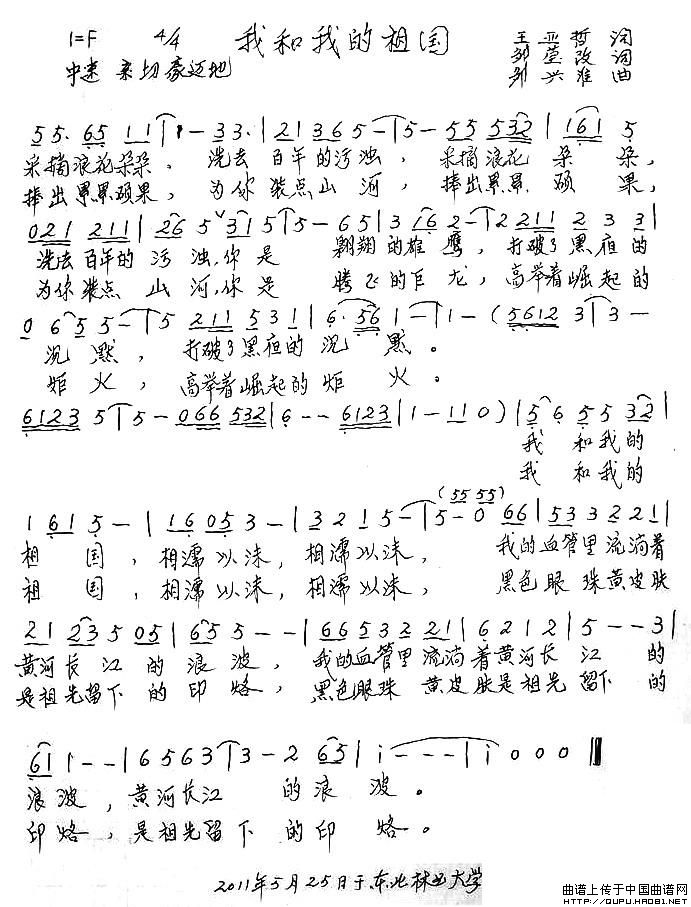 1=F 4/4 我和我的祖国 王亚哲 词
邹莹 改词
中速 亲切豪迈地 邹兴淮 曲
5 5· 6 5 1 1 | 1 - 3 3· | 2 1 3 6 5 - | 5 - 5 5 5 3 2 | 1 6 1 5
采摘浪花朵朵。洗去百年的污浊，采摘浪花朵朵，
捧出累累硕果，为你装点山河，捧出累累硕果，
0 2 1 2 1 1 | 2 6 5 ∨ 3 1 5 | 5 - 6 5 | 3 1 6 2 - | 2 2 1 1 2 3 3 |
洗去百年的污浊，你是翱翔的雄鹰，打破了黑夜的
为你装点山河，你是腾飞的巨龙，高举着崛起的
0 6 5 5 - | 5 2 1 1 5 3 1 | 6· 5 6 1 - | 1 - ( 5 6 1 2 3 | 3 -
沉默，打破了黑夜的沉默。
炬火，高举着崛起的炬火。
6 1 2 3 5 | 5 - 0 6 6 5 3 2 | 6 - - 6 1 2 3 | 1 - 1 1 0 ) | 5 6 5 5 3 2 |
我和我的
我和我的
(5 5 5 5)
1 6 1 5 - | 1 6 0 5 3 - | 3 2 1 5 - | 5 - 0 6 6 | 5 3 3 2 2 1 |
祖国，相濡以沫，相濡以沫，我的血管里流淌着
祖国，相濡以沫，相濡以沫，黑色眼珠黄皮肤
2 1 2 3 5 0 5 | 6 5 5 - - | 6 6 5 3 2 2 1 | 6 2 1 2 | 5 - - 3 |
黄河长江的浪波，我的血管里流淌着黄河长江的
是祖先留下的印烙，黑色眼珠黄皮肤是祖先留下的
6 1 1 - - | 6 5 6 3 | 3 - 2 6 5 | i - - - | i 0 0 0 ‖
浪波，黄河长江的浪波。
印烙，是祖先留下的印烙。
2011年5月25日于东北林业大学
曲谱上传于中国曲谱网
HTTP://QUPU.HAO81.NET